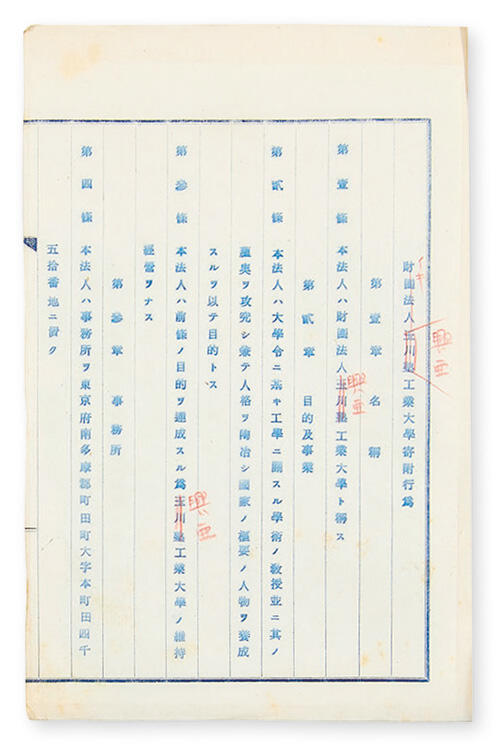 財團法人玉川塾工業大學寄附行爲
興亜
第壹章 名稱
第壹條 本法人ハ財團法人玉川塾工業大學ト稱ス
興亜
第貳章 目的及事業
第貳條 本法人ハ大學令ニ基キ工學ニ關スル學術ノ敎授並ニ其ノ
蘊奧ヲ攻究シ兼テ人格ヲ陶冶シ國家ノ樞要ノ人物ヲ養成
スルヲ以テ目的トス
第參條 本法人ハ前條ノ目的ヲ達成スル爲玉川塾工業大學ノ維持
興亜
經營ヲナス
第參章 事務所
第四條 本法人ハ事務所ヲ東京府南多摩郡町田町大字本町田四千
五拾番地ニ置ク